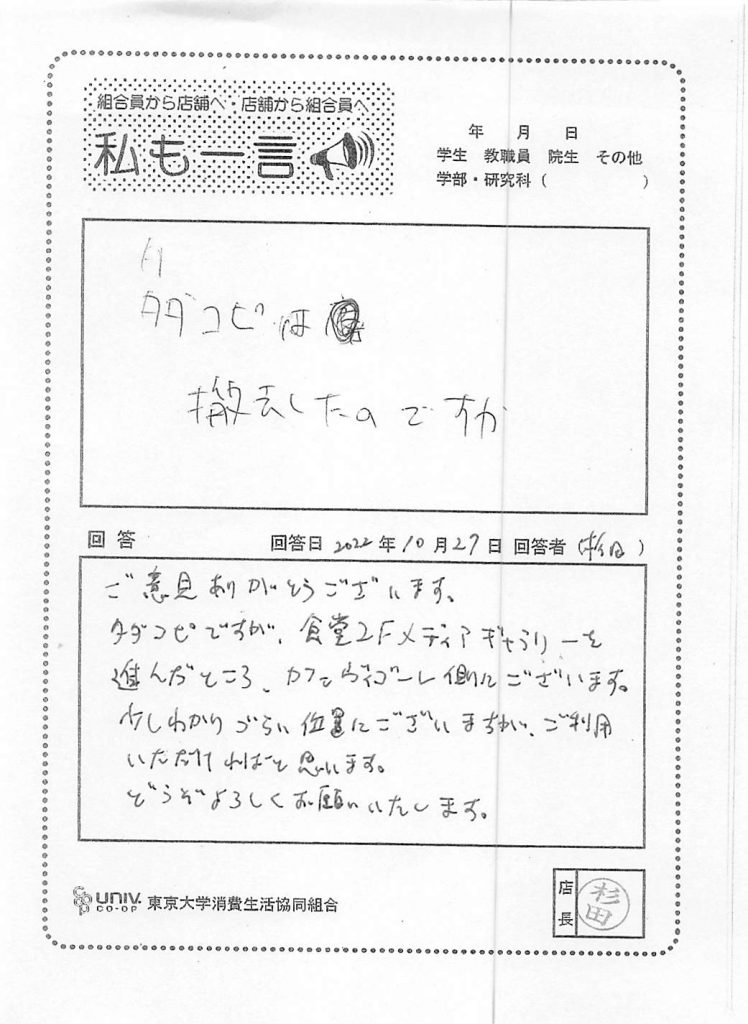 組合員から店舗へ・店舗から組合員へ
私も一言
年 月 日
学生 教職員 院生 その他
学部・研究科( )
タダコピは
撤去したのですか
回答 回答日 2022年10月27日 回答者(杉田)
ご意見ありがとうございます。
タダコピですが、食堂2Fメディアギャラリーを
進んだところ、カフェヴィゴーレ側にございます。
少しわかりづらい位置にございますが、ご利用
いただければと思います。
どうぞよろしくお願いいたします。
CO-OP UNIV. CO-OP 東京大学消費生活協同組合
店長 杉田